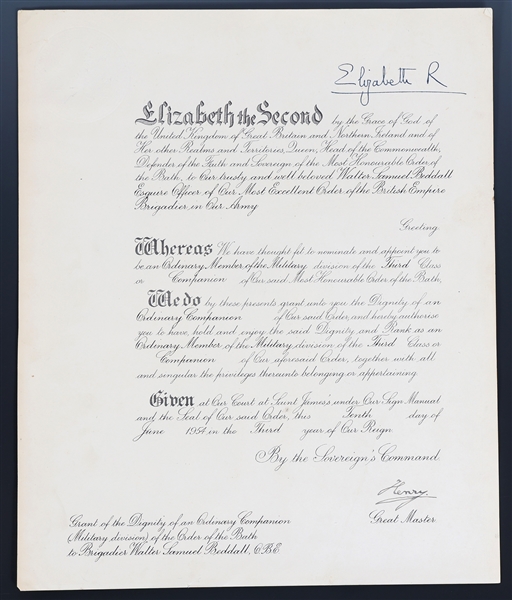 Elizabeth R
Elizabeth the Second by the Grace of God of
the United Kingdom of Great Britain and Northern Ireland and of
Her other Realms and Territories, Queen, Head of the Commonwealth,
Defender of the Faith and Sovereign of the Most Honourable Order of
the Bath, to Our trusty and well beloved Walter Samuel Beddall
Esquire Officer of Our Most Excellent Order of the British Empire
Brigadier in Our Army
Greeting
Whereas We have thought fit to nominate and appoint you to
be an Ordinary Member of the Military division of the Third Class
or Companion of Our said Most Honourable Order of the Bath,
We do by these presents grant unto you the Dignity of an
Ordinary Companion of Our said Order, and hereby authorise
you to have, hold and enjoy the said Dignity and Rank as an
Ordinary Member of the Military division of the Third Class or
Companion of Our aforesaid Order, together with all
and singular the privileges thereunto belonging or appertaining.
Given at Our Court at Saint James's under Our Sign Manual
and the Seal of Our said Order, this Tenth day of
June 1954 in the Third year of Our Reign
By the Sovereign's Command
Henry.
Great Master
Grant of the Dignity of an Ordinary Companion
(Military division) of the Order of the Bath
to Brigadier Walter Samuel Beddall, OBE